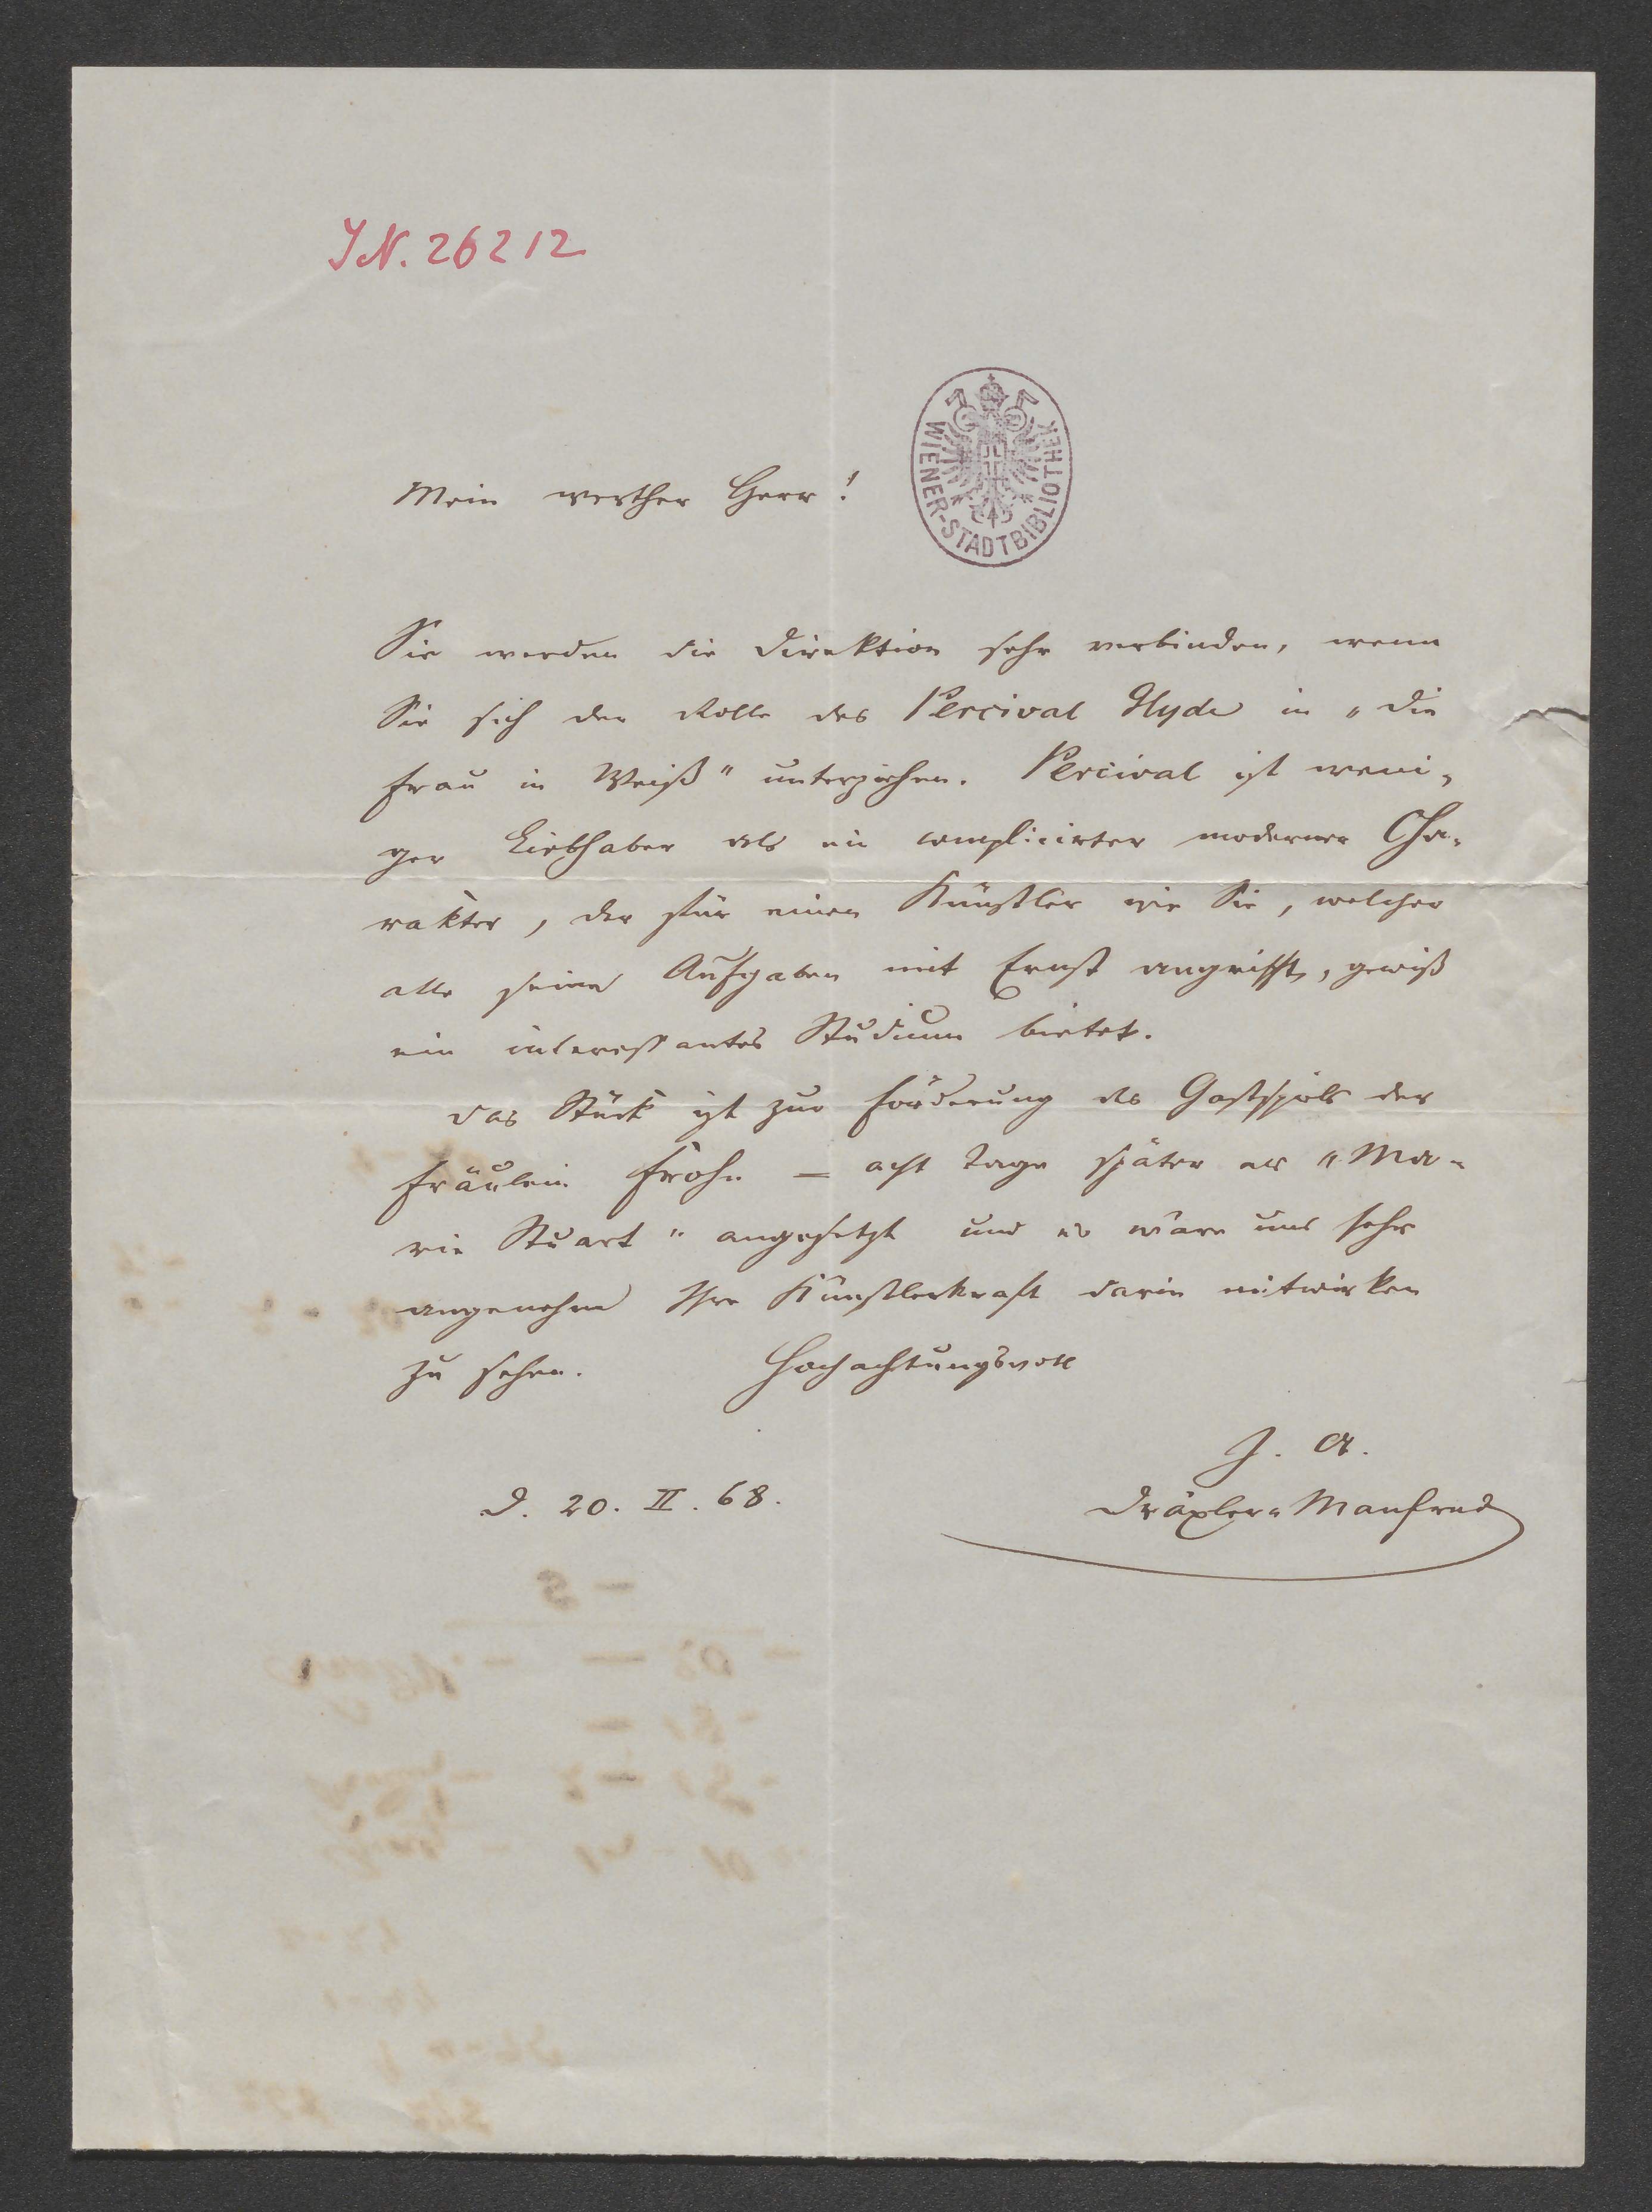 IN. 26212
WIENER-STADTBIBLIOTHEK
Mein werther Herr!
Sie werden die Direktion sehr verbinden, wenn
Sie sich der Rolle des Percival Hyde in „Die
Frau in Weiß" unterziehen. Percival ist weni-
ger Liebhaber als ein complicirter moderner Cha-
rakter, der für einen Künstler wie Sie, welcher
alle seine Aufgaben mit Ernst angreift, gewiß
ein interessantes Studium bietet.
Das Stück ist zur Förderung des Gastspiels der
Fräulein Frohn – acht Tage später als „Ma-
rie Stuart" angesetzt und es wäre uns sehr
angenehm Ihre Künstlerkraft darin mitwirken
zu sehen. Hochachtungsvoll
J. A.
D. 20. II. 68.
Dräxler-Manfred